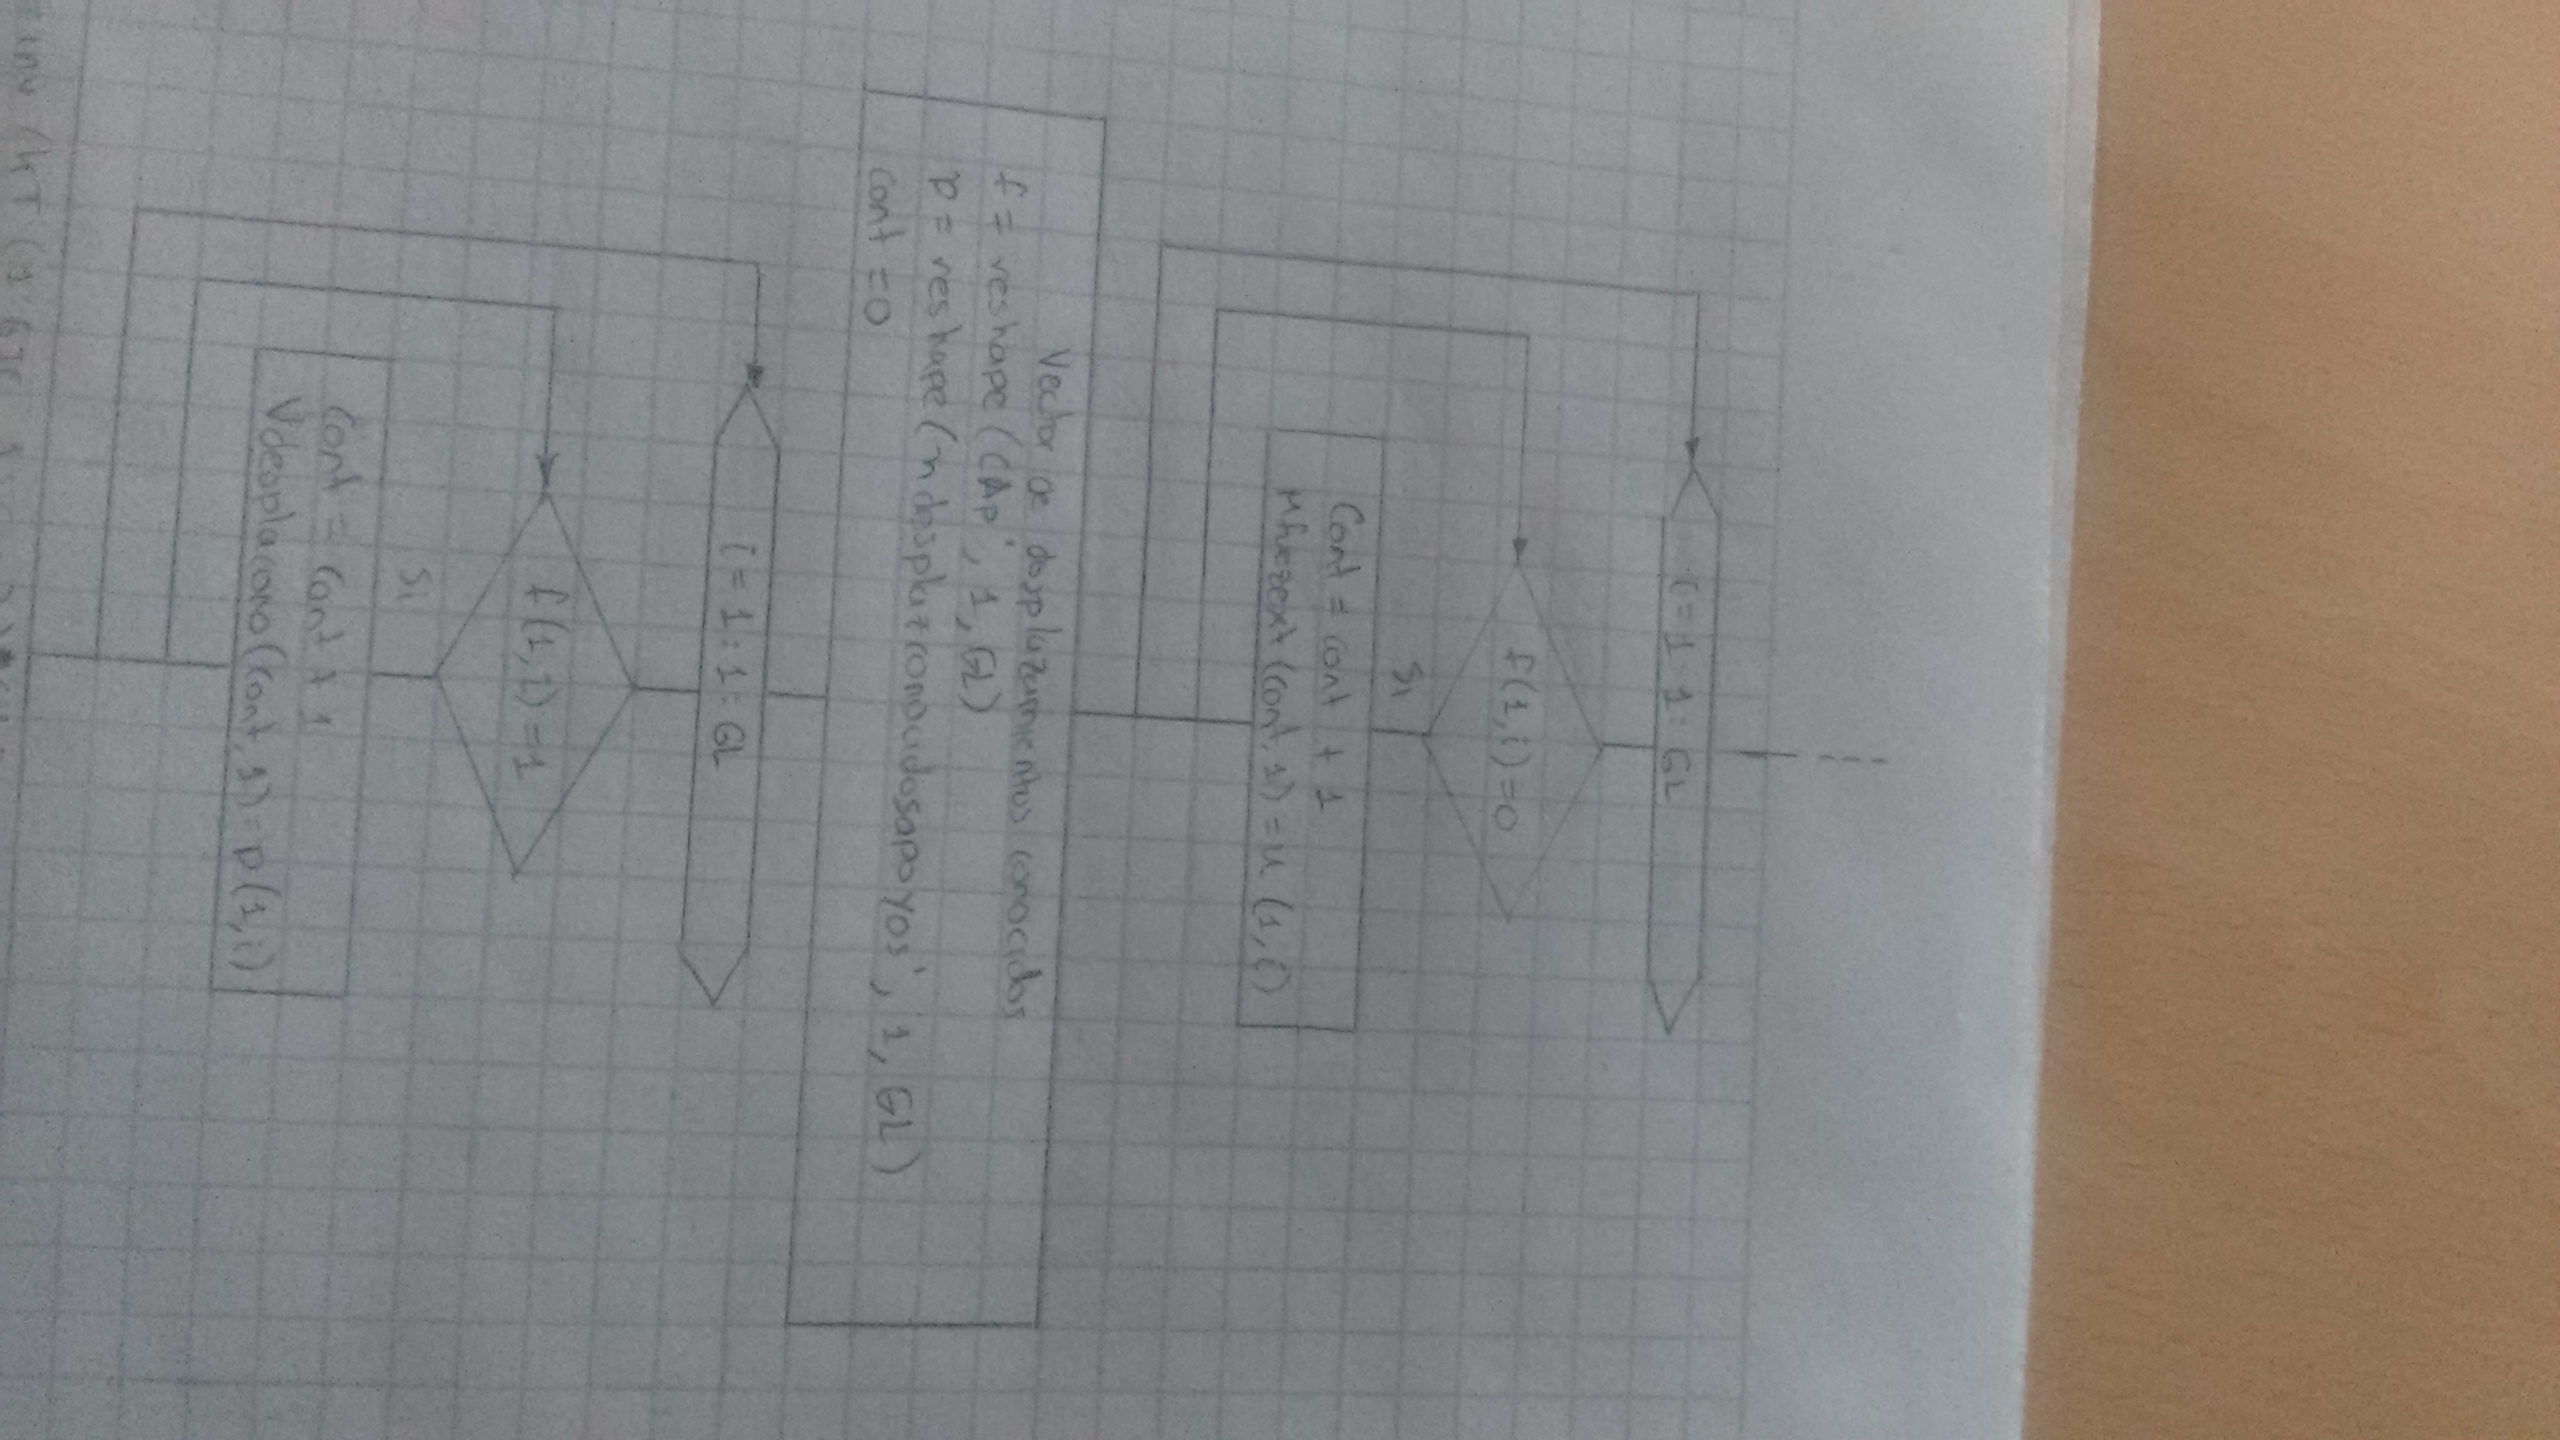 i = 1 : 1 : GL
f(1,i)=0
Si
Cont = cont + 1
Mfuezext (cont, 1) = u (1, i)
Vector de desplazamientos conocidos
f = reshape (CAp', 1, GL)
p = reshape (mdesplazconocidosapoyos', 1, GL)
cont = 0
i = 1 : 1 : GL
f(1,1) = 1
Si
Cont = cont + 1
Vdesplacono (cont, 1) = p (1, i)